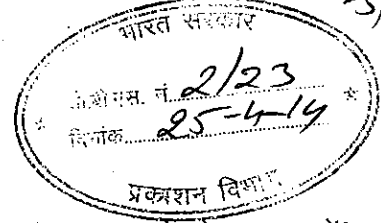 भारत सरकार
जी.बी.एस. नं. 2/23
दिनांक 25-4-14
प्रकाशन विभाग